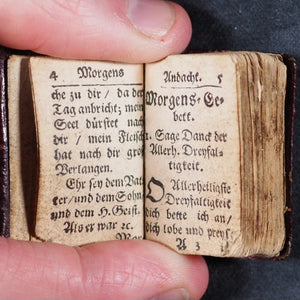 4 Morgens
che zu dir / da der
Tag anbricht; mein
Seel dürstet nach
dir / mein Fleisch
hat nach dir groß
Verlangen.
Ehr sey dem Vat-
ter / und dem Sohn
und dem H. Geist.
Als er war ꝛc.
Mor-
Andacht. 5
Morgens-Ge-
bett.
1. Sage Danck der
Allerh. Dreyfal-
tigkeit.
O Allerheiligste
Dreyfaltigkeit
dich bette ich an /
dich lobe und preys
A 3